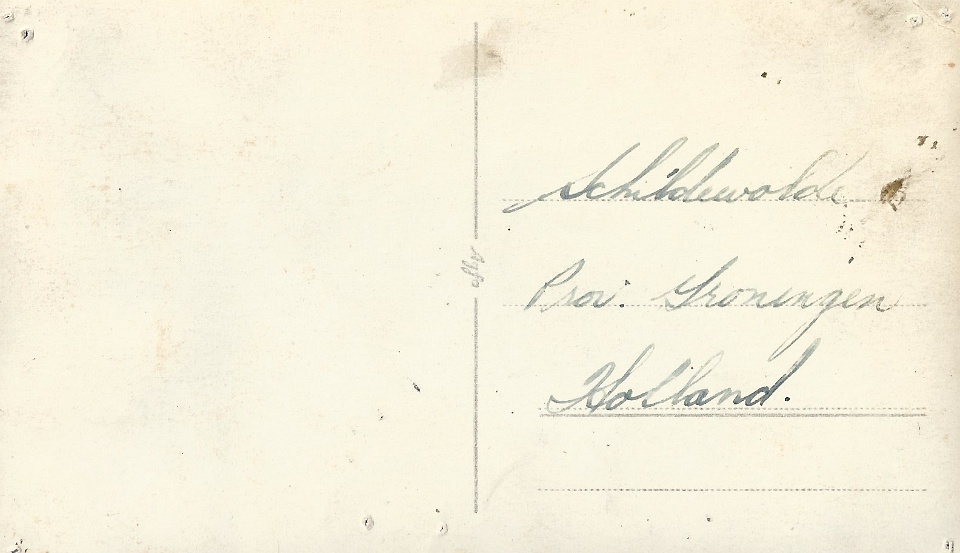 Schildewolde
Prov. Groningen
Holland.